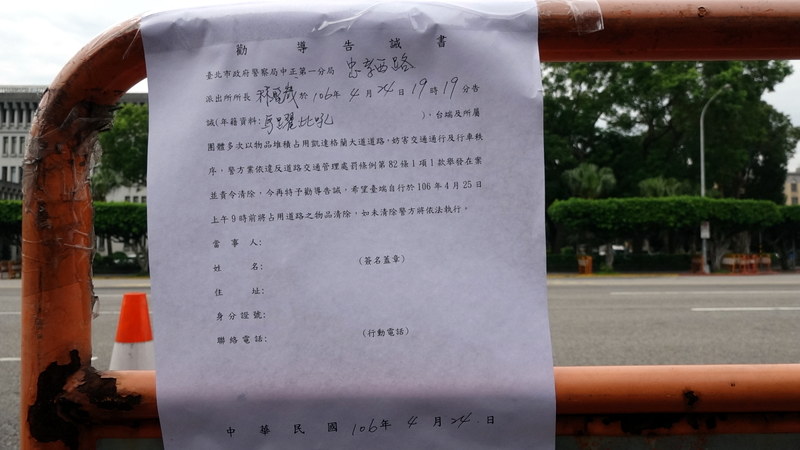 勸導告誡書
臺北市政府警察局中正第一分局 忠孝西路
派出所所長 林 於 106年 4月 24日 19時 19分告
誡(年籍資料: 馬躍比吼 )，台端及所屬
團體多次以物品堆積占用凱達格蘭大道道路，妨害交通通行及行車秩
序，警方業依違反道路交通管理處罰條例第82條1項1款舉發在案
並責令清除，今再特予勸導告誡，希望臺端自行於106年4月25日
上午9時前將占用道路之物品清除，如未清除警方將依法執行。
當事人:
姓名: (簽名蓋章)
住址:
身分證號:
聯絡電話: (行動電話)
中華民國 106年 4月 24日